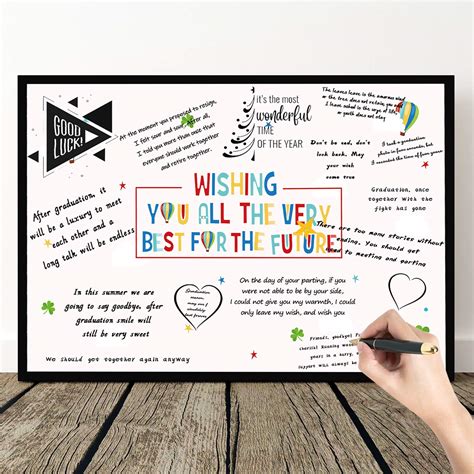 GOOD
LUCK!
At the moment you proposed to resign,
I felt sour and sour after all,
I told you more than once that
everyone should work together
and retire together.
it's the most
wonderful
TIME
OF THE YEAR
The leaves leave is the amorous wind
or the tree does not retain, maybe,
is the original life of the leaves
worth does not stay
Don't be sad, don't
look back, May
your wish
come true
I took a graduation
After graduation, it
will be a luxury to meet
each other and a
long talk will be endless
WISHING
YOU ALL THE VERY
BEST FOR THE FUTURE
Graduation, once
together with the
fight has gone
There are too many stories without
ending, You should get
used to meeting and parting
In this summer we are
going to say goodbye, after
graduation smile will
still be very sweet
Graduation
On the day of your parting, if you
were not able to be by your side,
I could not give you my warmth, I could
only leave my wish, and wish you
We should get together again anyway
Friends, goodbye!
cherish! Running
years in a
Support
wish